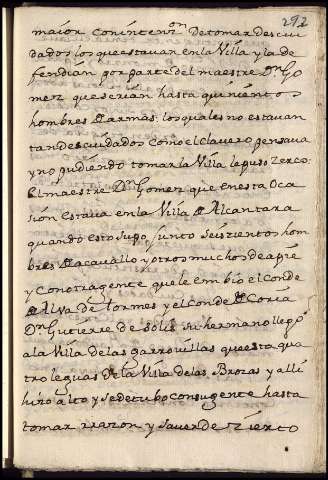 272
maior conintenzion detomar descui
dados los que estavan en la Villa y la de
fendian por parte del maestre Dn Go
mez que serian hasta quinientos
hombres de armas, los quales no estavan
tan descuidados como el clavero pensava
y no pudiendo tomar la Villa le puso zerco:
El maestre Dn Gomez que en esta oca
sion estava en la Villa de Alcantara
quando esto supo, junto seiszientos hom
bres de acavallo y otros muchos de apie
y con otra gente que le embio el conde
de Alva de tormes y el conde de Coria
Dn Gutierre de Solis su hermano llego
a la Villa de las garrovillas que esta qua
tro leguas de la Villa de las Brozas y alli
hizo alto y se detubo con su gente hasta
tomar razon y saver de zierto